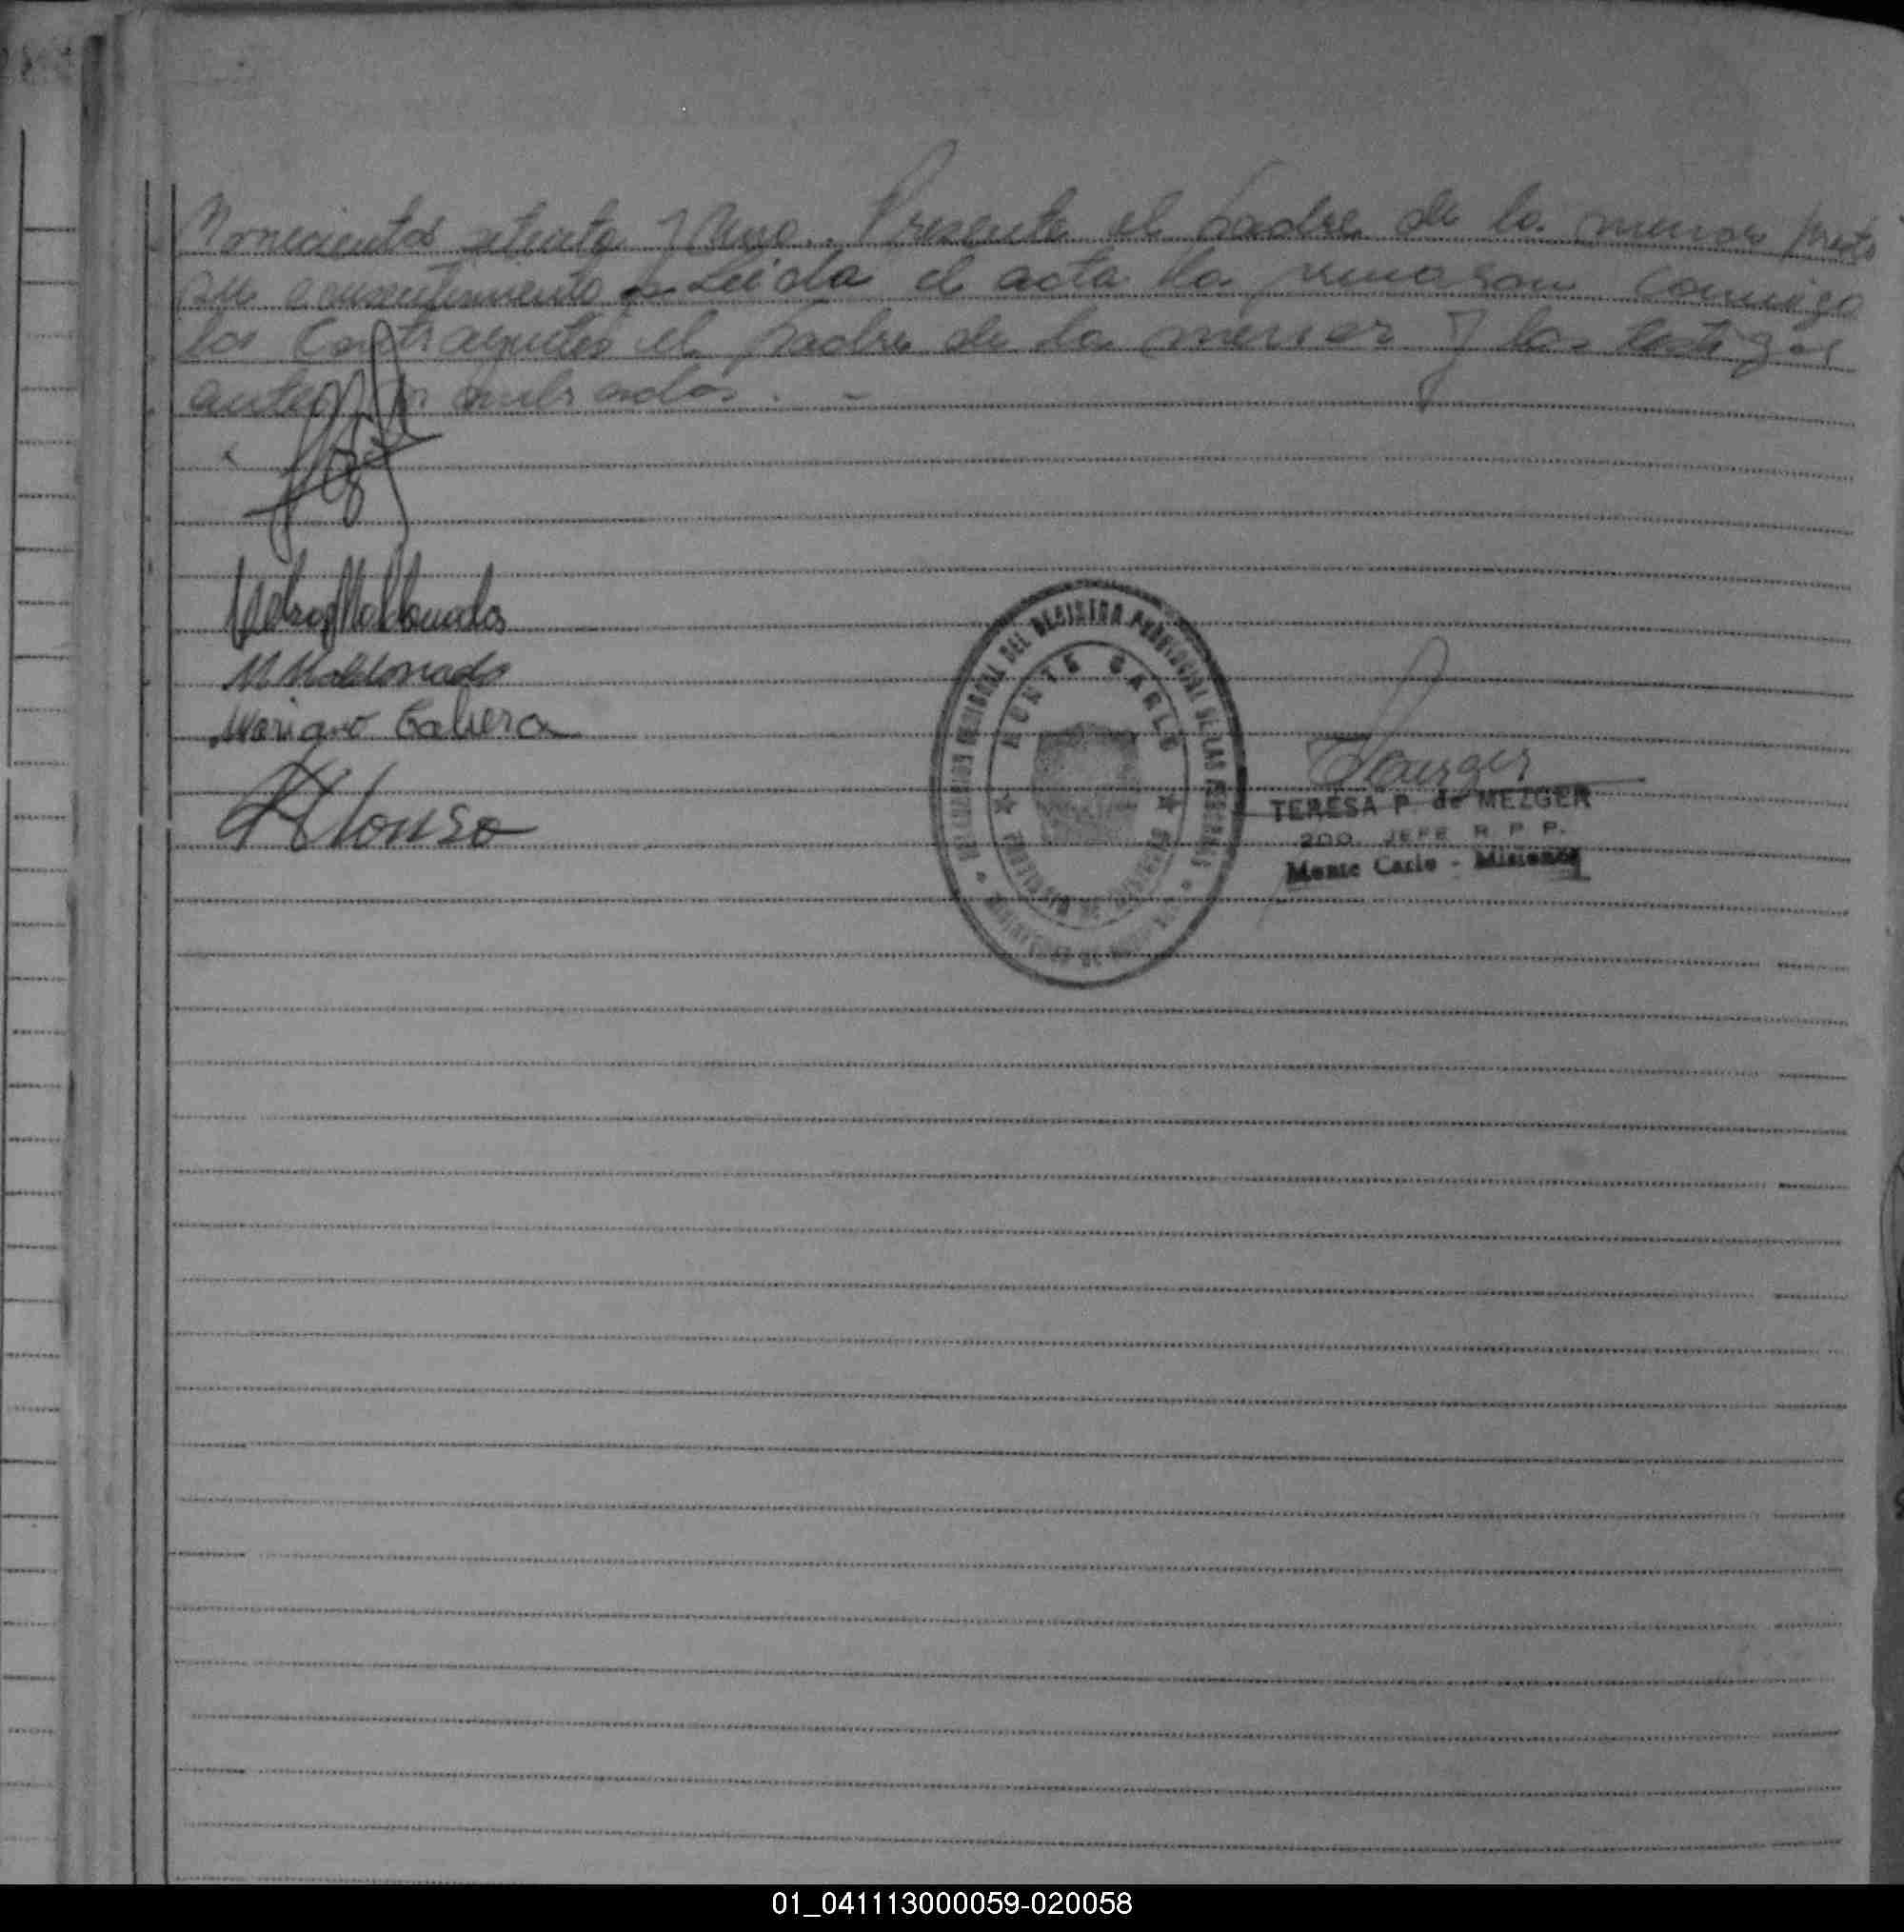 Novecientos setenta y Uno. Presente el padre de la menor presto
su consentimiento Leida el acta la firmaron conmigo
los Contrayentes el padre de la menor y los testigos
antes nombrados. -
Maldonado
M Maldonado
Mariano Cabrera
Alonso
DELEGACION REGIONAL DEL REGISTRO PROVINCIAL DE LAS PERSONAS
MONTE CARLO
TERESA P. de MEZGER
2DO. JEFE R. P. P.
Monte Carlo - Misiones
01_041113000059-020058